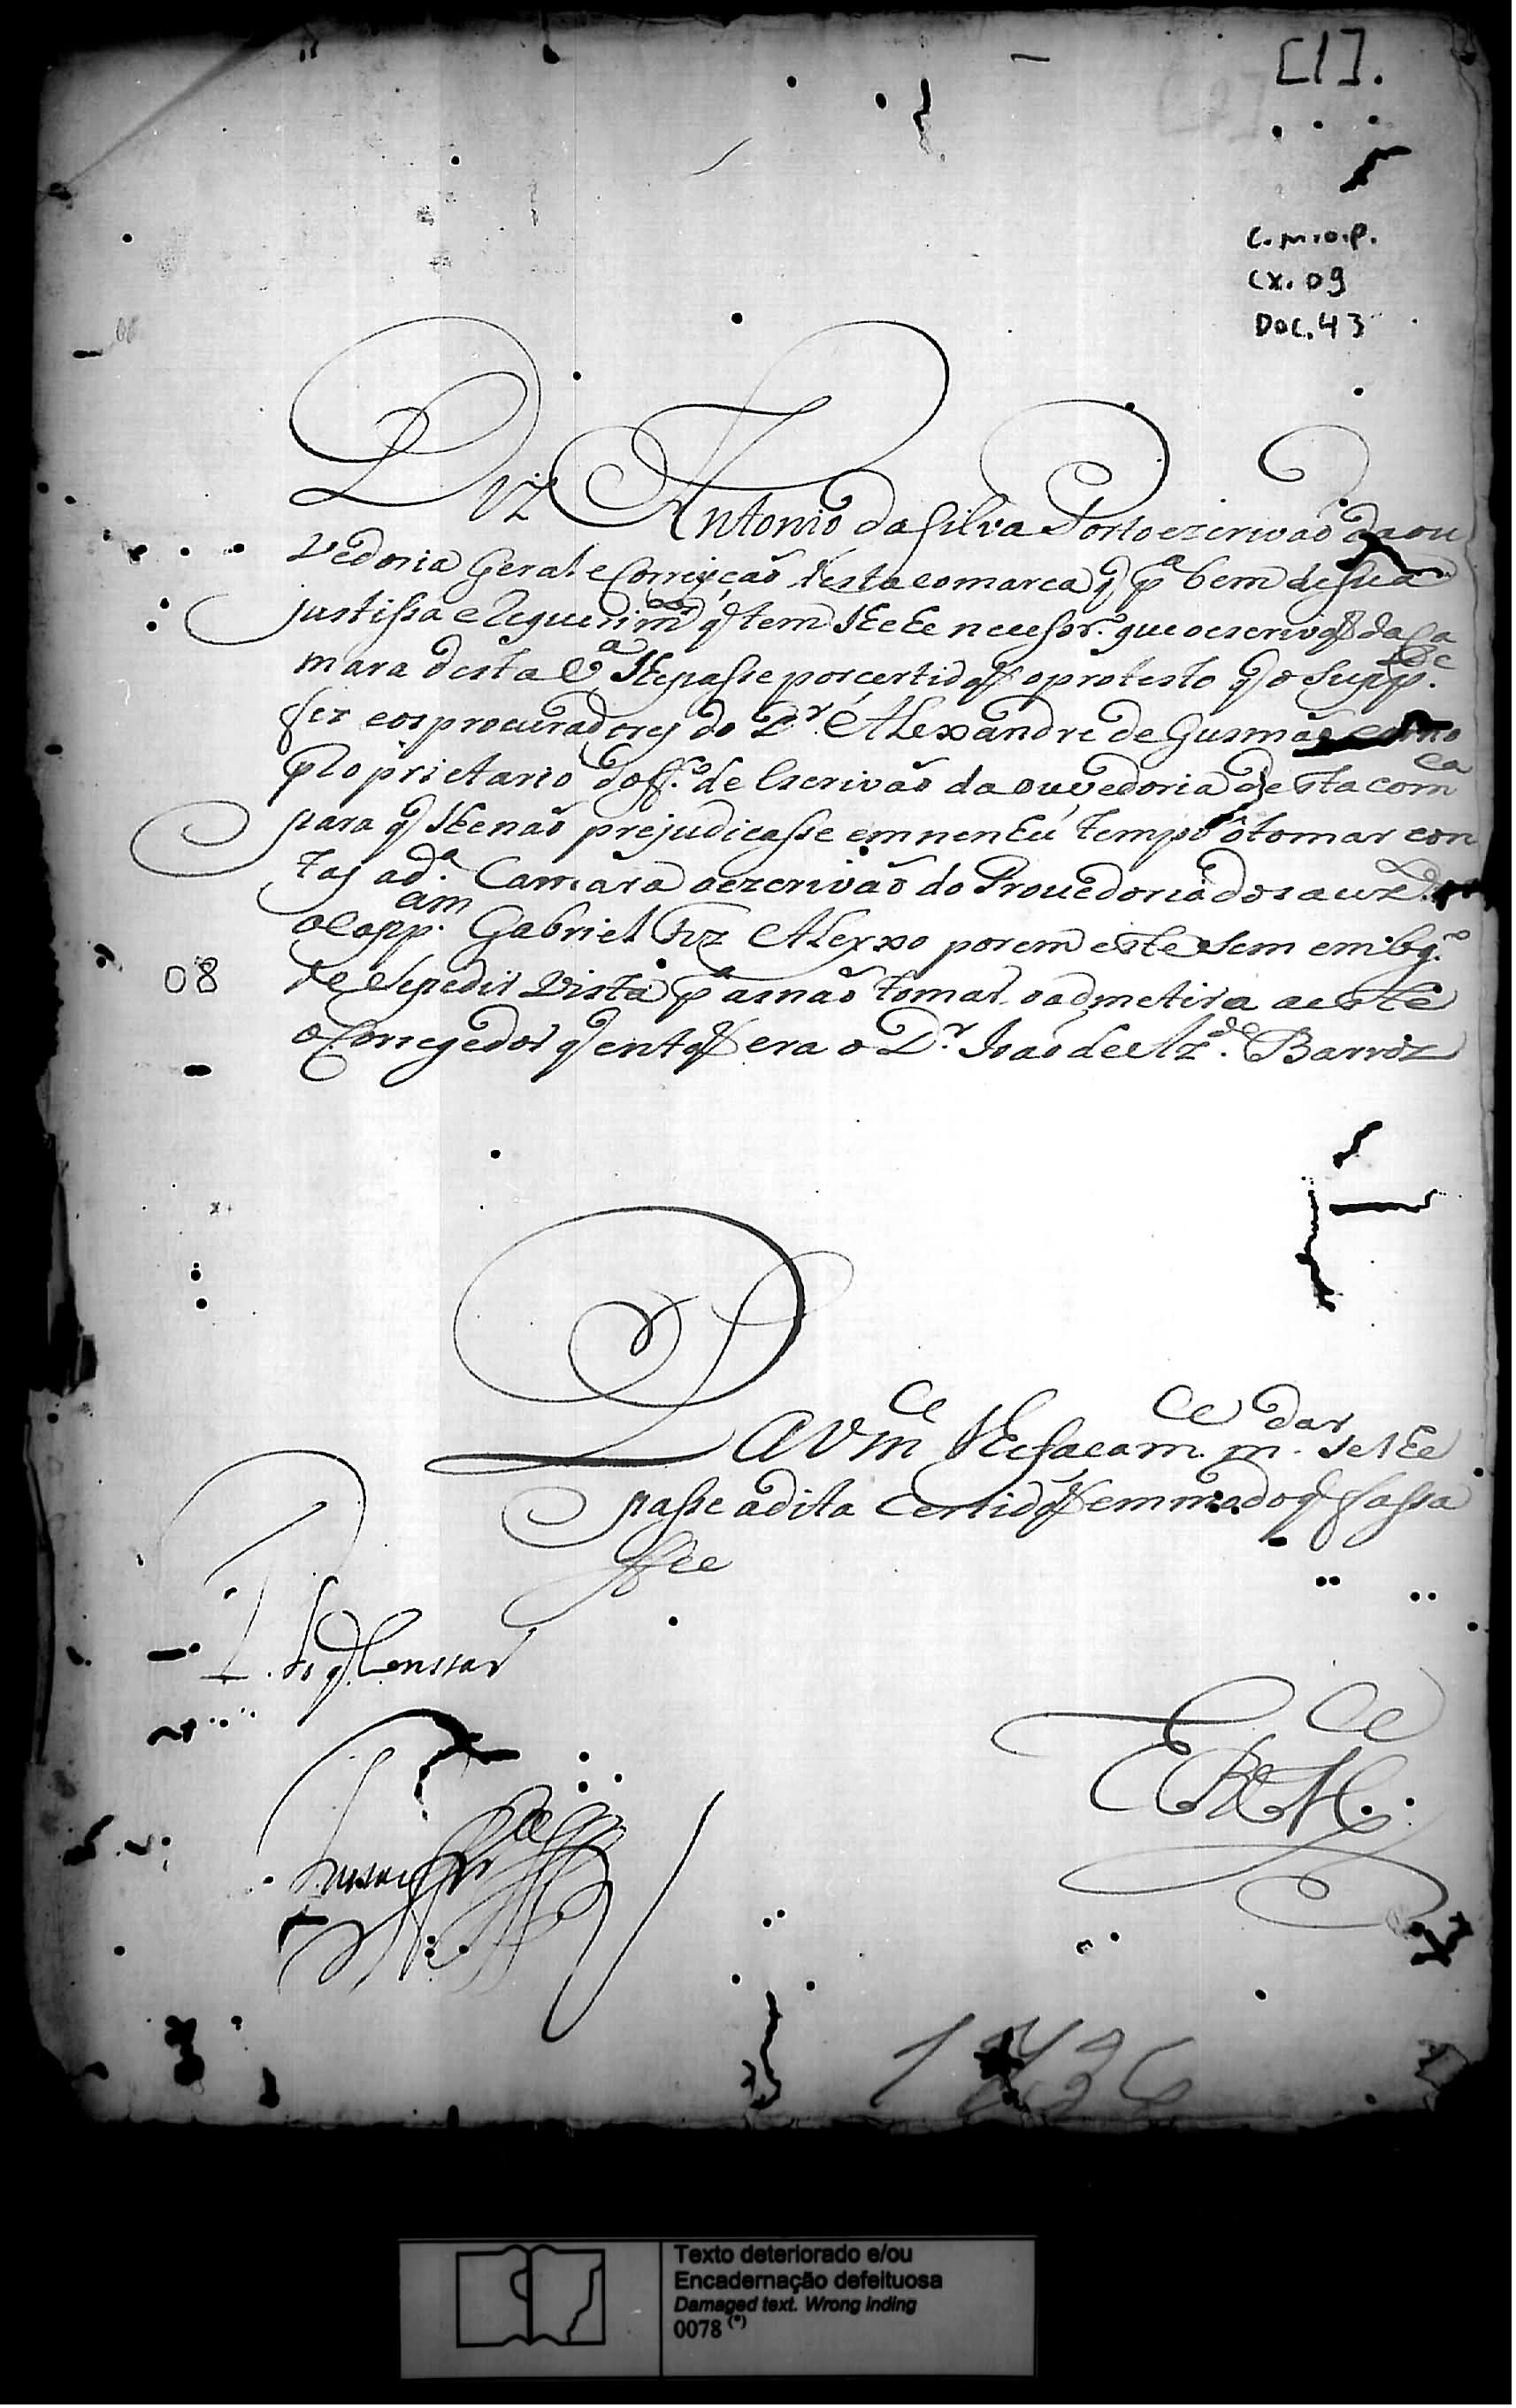 [1].
C.M.O.P.
CX. 09
DOC. 43
Diz Antonio da Silva Porto ezcrivaõ da ou
vedoria Geral e Correyçaõ desta comarca q̃ pª bem de sua
justissa e Requerim.tos q̃ tem lhe he necessr.º que o escrivaõ da Ca
mara desta Vª lhe passe por certidaõ o protesto q̃ o Supp.e
fez eos procuradores do D.r Alexandre de Gusmaõ como
proprietario do off.º de Escrivaõ da ouvedoria desta com.ca
para q̃ lhe naõ prejudicasse em nenhũ tempo o tomar con
tas a d.ª Camara o ezcrivaõ do Provedoria dos auz.
o Capp.am Gabriel frz Aleyxo porem este sem embg.º
de se pedir vista pª as naõ tomar o admetira a este
o Corregedor q̃ entaõ era o D.r Joaõ de Az.do Barroz
08
P. a Vm.ce lhe facam m.ce dar se lhe
passe a dita certidaõ em modo q̃ fassa
ffee
P. do q̃ Constar
E R M.ce
1736
Texto deteriorado e/ou
Encadernação defeituosa
Damaged text. Wrong inding
0078 (*)